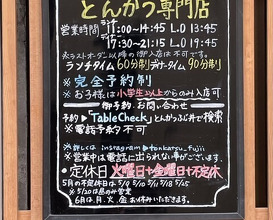 とんかつ専門店
営業時間 ランチ 11:00~14:45 L.O 13:45
ディナー 17:30~21:15 L.O 19:45
※ラストオーダー以降の御入店は不可です。
ランチタイム60分制 ディナータイム90分制
※完全予約制
※お子様は小学生以上からのみ入店可
御予約、お問い合わせ
予約▶「TableCheck」とんかつふじ井で検索
※電話予約不可
※詳しくは instagram▶tonkatsu_fujii
※営業中は電話に出られない事がございます。
・定休日 火曜日+金曜日+不定休
5月の不定休日
※5/20は昼のみ営業
6月は、月、火、金お休みいただきます。